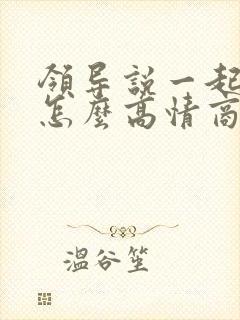 領导說一起
怎麼高情商
溫谷笙